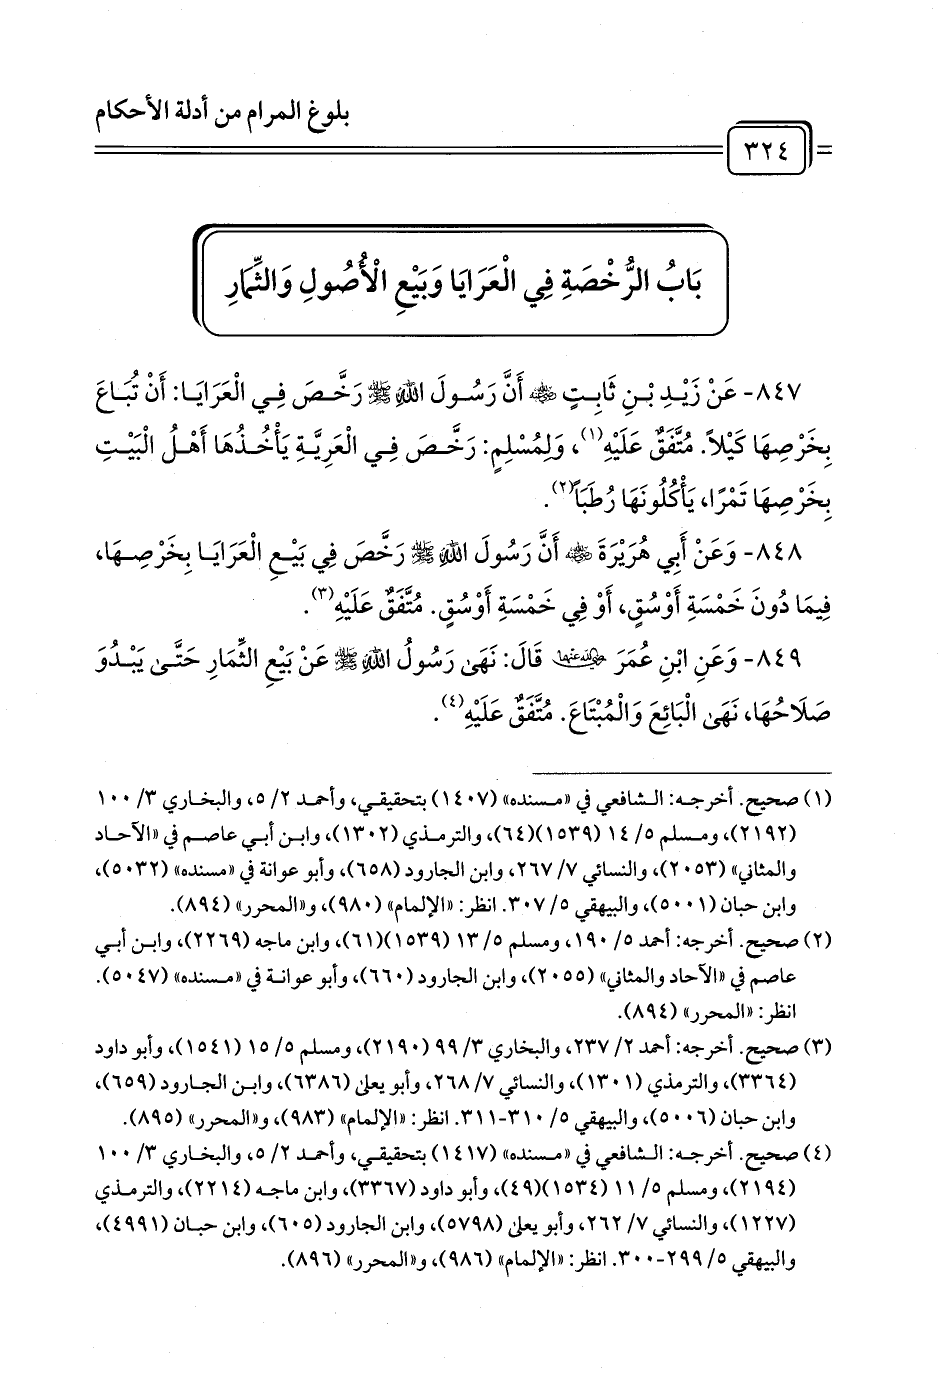 بلوغ المرام من أدلة الأحكام
٣٢٤
بَابُ الرُّخْصَةِ فِي الْعَرَايَا وَبَيْعِ الْأُصُولِ وَالثِّمَارِ
٨٤٧- عَنْ زَيْدِ بْنِ ثَابِتٍ رضي الله عنه أَنَّ رَسُولَ اللهِ ﷺ رَخَّصَ فِي الْعَرَايَا: أَنْ تُبَاعَ
بِخَرْصِهَا كَيْلاً. مُتَّفَقٌ عَلَيْهِ(١)، وَلِمُسْلِمٍ: رَخَّصَ فِي الْعَرِيَّةِ يَأْخُذُهَا أَهْلُ الْبَيْتِ
بِخَرْصِهَا تَمْرًا، يَأْكُلُونَهَا رُطَبَاً(٢).
٨٤٨- وَعَنْ أَبِي هُرَيْرَةَ رضي الله عنه أَنَّ رَسُولَ اللهِ ﷺ رَخَّصَ فِي بَيْعِ الْعَرَايَا بِخَرْصِهَا،
فِيمَا دُونَ خَمْسَةِ أَوْسُقٍ، أَوْ فِي خَمْسَةِ أَوْسُقٍ. مُتَّفَقٌ عَلَيْهِ(٣).
٨٤٩- وَعَنِ ابْنِ عُمَرَ رضي الله عنهما قَالَ: نَهَى رَسُولُ اللهِ ﷺ عَنْ بَيْعِ الثِّمَارِ حَتَّى يَبْدُوَ
صَلَاحُهَا، نَهَى الْبَائِعَ وَالْمُبْتَاعَ. مُتَّفَقٌ عَلَيْهِ(٤).
(١) صحيح. أخرجه: الشافعي في «مسنده» (١٤٠٧) بتحقيقي، وأحمد ٢/ ٥، والبخاري ٣/ ١٠٠
(٢١٩٢)، ومسلم ٥/ ١٤ (١٥٣٩)(٦٤)، والترمذي (١٣٠٢)، وابن أبي عاصم في «الآحاد
والمثاني» (٢٠٥٣)، والنسائي ٧/ ٢٦٧، وابن الجارود (٦٥٨)، وأبو عوانة في «مسنده» (٥٠٣٢)،
وابن حبان (٥٠٠١)، والبيهقي ٥/ ٣٠٧. انظر: «الإلمام» (٩٨٠)، و«المحرر» (٨٩٤).
(٢) صحيح. أخرجه: أحمد ٥/ ١٩٠، ومسلم ٥/ ١٣ (١٥٣٩)(٦١)، وابن ماجه (٢٢٦٩)، وابن أبي
عاصم في «الآحاد والمثاني» (٢٠٥٥)، وابن الجارود (٦٦٠)، وأبو عوانة في «مسنده» (٥٠٤٧).
انظر: «المحرر» (٨٩٤).
(٣) صحيح. أخرجه: أحمد ٢/ ٢٣٧، والبخاري ٣/ ٩٩ (٢١٩٠)، ومسلم ٥/ ١٥ (١٥٤١)، وأبو داود
(٣٣٦٤)، والترمذي (١٣٠١)، والنسائي ٧/ ٢٦٨، وأبو يعلى (٦٣٨٦)، وابن الجارود (٦٥٩)،
وابن حبان (٥٠٠٦)، والبيهقي ٥/ ٣١٠-٣١١. انظر: «الإلمام» (٩٨٣)، و«المحرر» (٨٩٥).
(٤) صحيح. أخرجه: الشافعي في «مسنده» (١٤١٧) بتحقيقي، وأحمد ٢/ ٥، والبخاري ٣/ ١٠٠
(٢١٩٤)، ومسلم ٥/ ١١ (١٥٣٤)(٤٩)، وأبو داود (٣٣٦٧)، وابن ماجه (٢٢١٤)، والترمذي
(١٢٢٧)، والنسائي ٧/ ٢٦٢، وأبو يعلى (٥٧٩٨)، وابن الجارود (٦٠٥)، وابن حبان (٤٩٩١)،
والبيهقي ٥/ ٢٩٩-٣٠٠. انظر: «الإلمام» (٩٨٦)، و«المحرر» (٨٩٦).